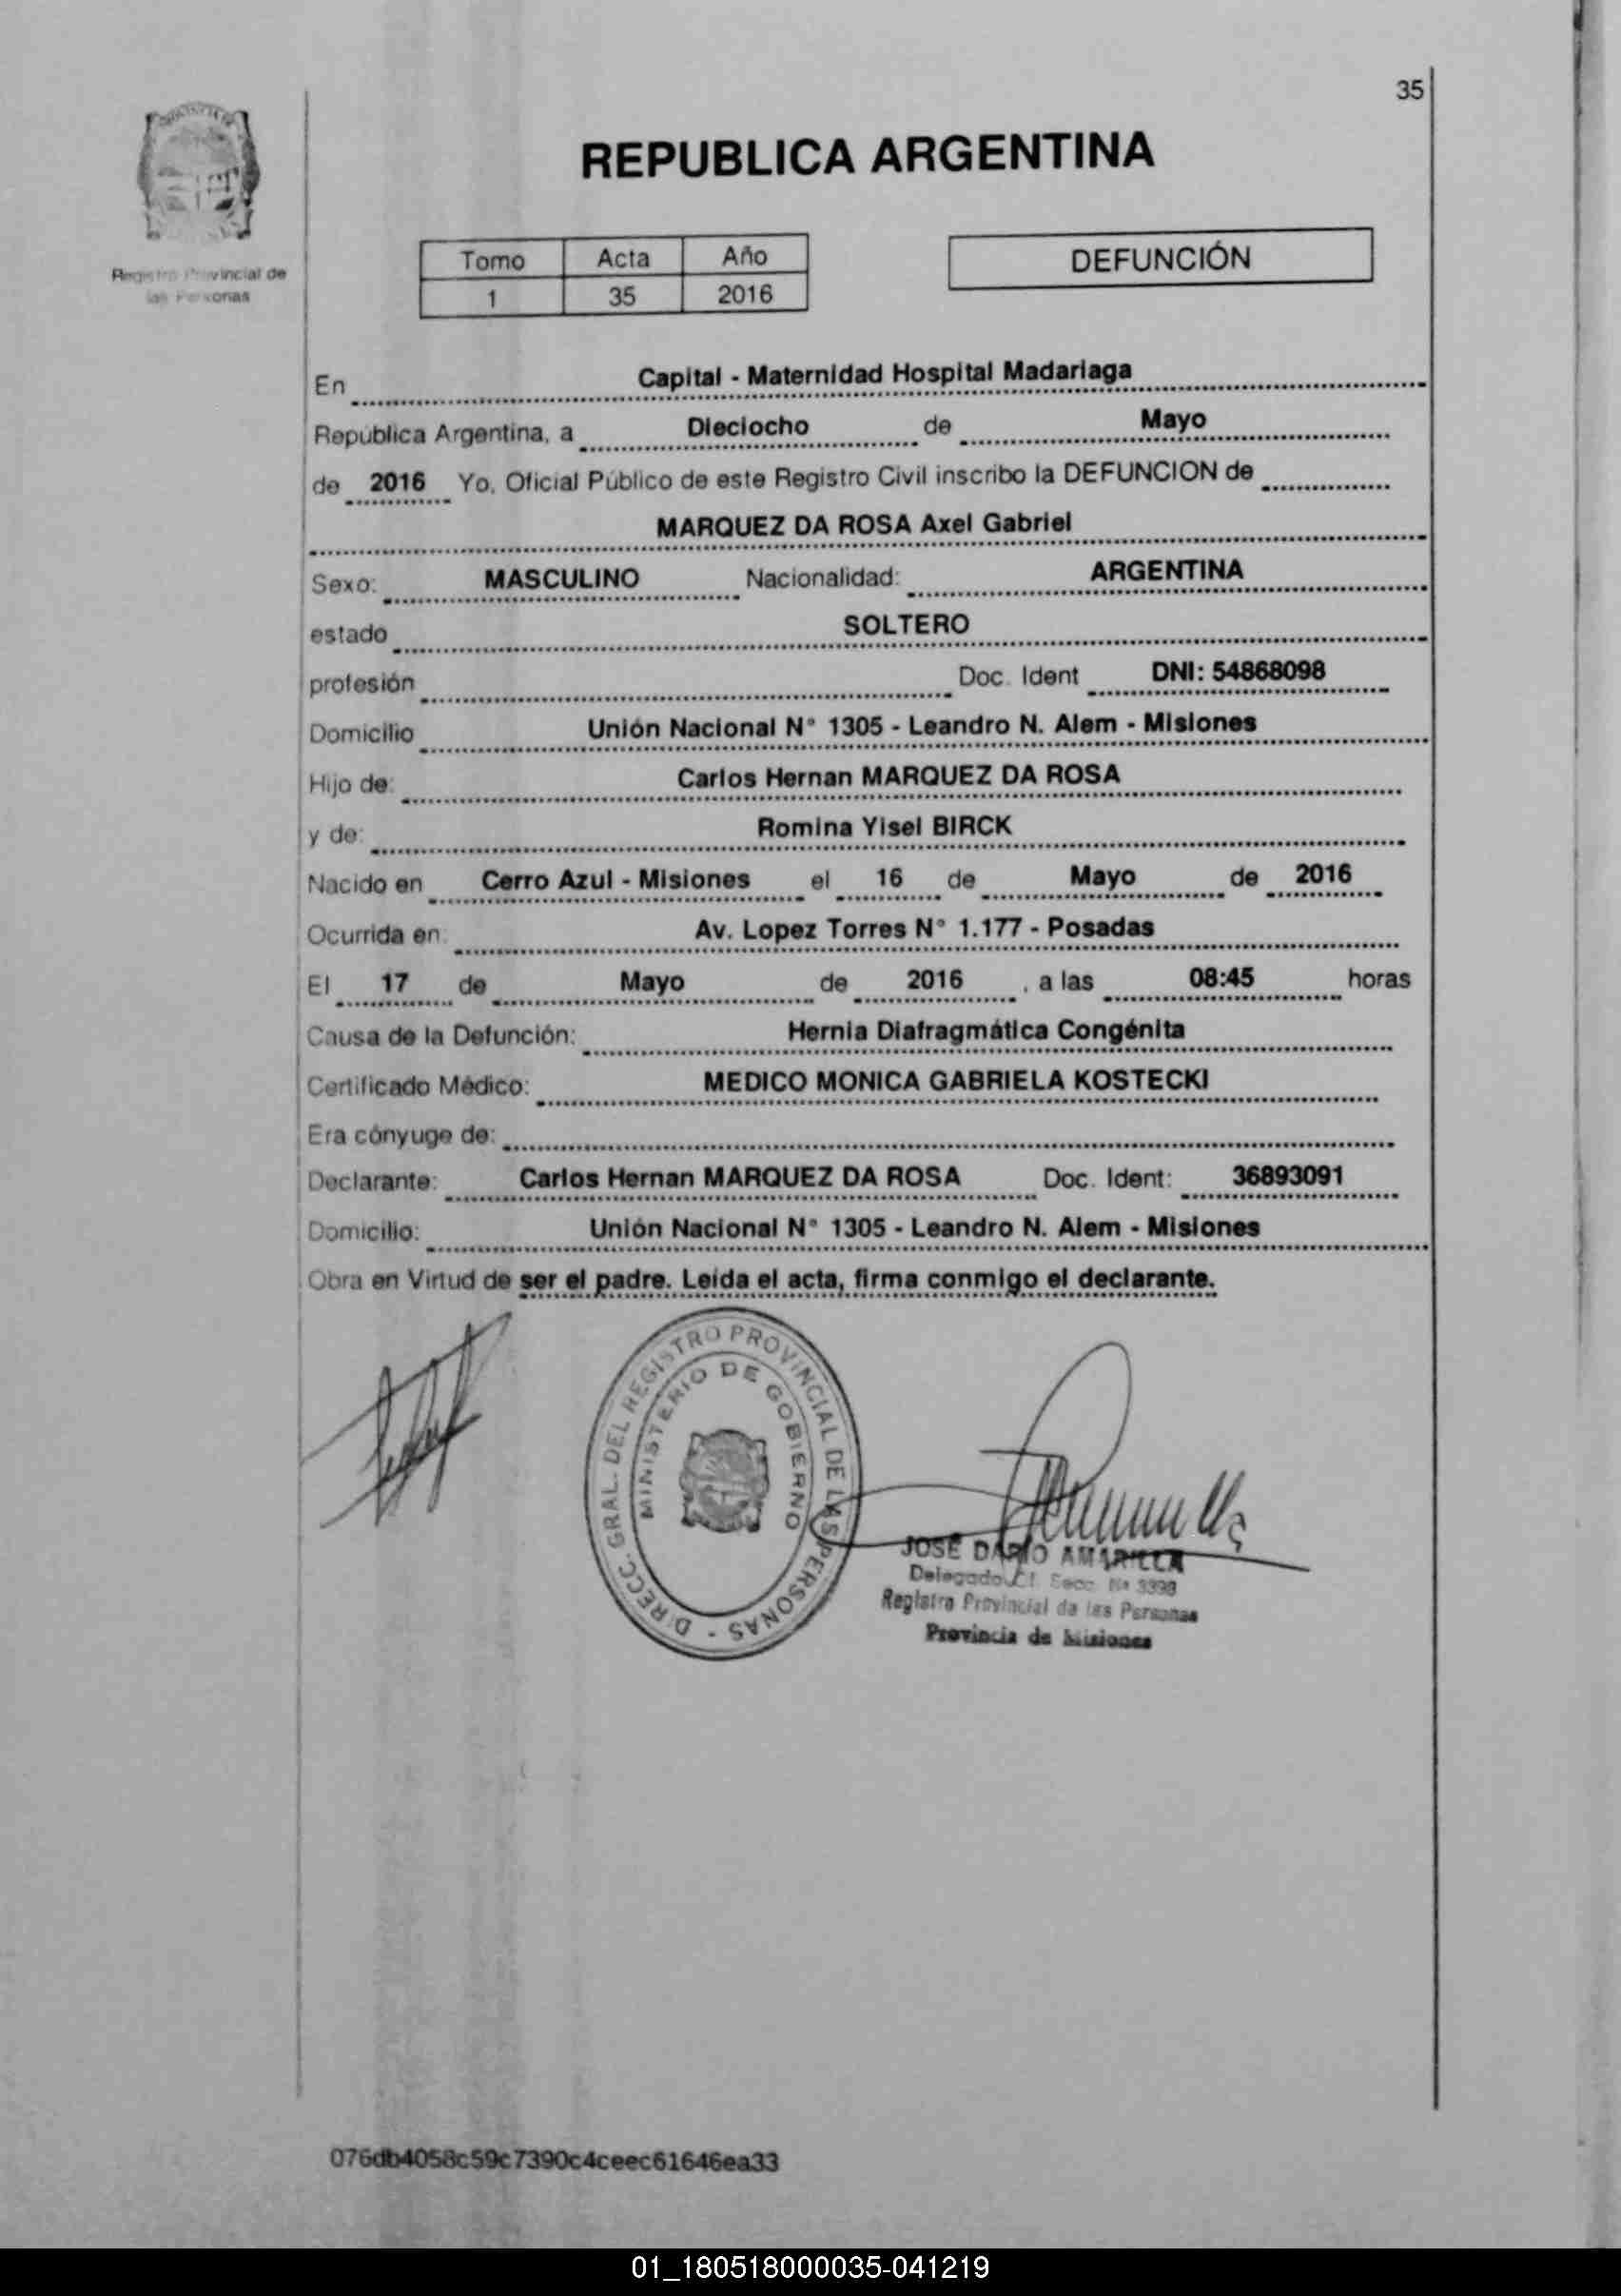 35
REPUBLICA ARGENTINA
Registro Provincial de
las Personas
Tomo Acta Año
1 35 2016
DEFUNCIÓN
En Capital - Maternidad Hospital Madariaga
República Argentina, a Dieciocho de Mayo
de 2016 Yo, Oficial Público de este Registro Civil inscribo la DEFUNCION de
MARQUEZ DA ROSA Axel Gabriel
Sexo: MASCULINO Nacionalidad: ARGENTINA
estado SOLTERO
profesión Doc. Ident DNI: 54868098
Domicilio Unión Nacional N° 1305 - Leandro N. Alem - Misiones
Hijo de: Carlos Hernan MARQUEZ DA ROSA
y de: Romina Yisel BIRCK
Nacido en Cerro Azul - Misiones el 16 de Mayo de 2016
Ocurrida en: Av. Lopez Torres N° 1.177 - Posadas
El 17 de Mayo de 2016 , a las 08:45 horas
Causa de la Defunción: Hernia Diafragmática Congénita
Certificado Médico: MEDICO MONICA GABRIELA KOSTECKI
Era cónyuge de:
Declarante: Carlos Hernan MARQUEZ DA ROSA Doc. Ident: 36893091
Domicilio: Unión Nacional N° 1305 - Leandro N. Alem - Misiones
Obra en Virtud de ser el padre. Leída el acta, firma conmigo el declarante.
DIRECC. GRAL. DEL REGISTRO PROVINCIAL DE LAS PERSONAS -
MINISTERIO DE GOBIERNO
JOSE DARIO AMARILLA
Delegado Secc. Nª
Registro Provincial de las Personas
Provincia de Misiones
076db4058c59c7390c4ceec61646ea33
01_180518000035-041219